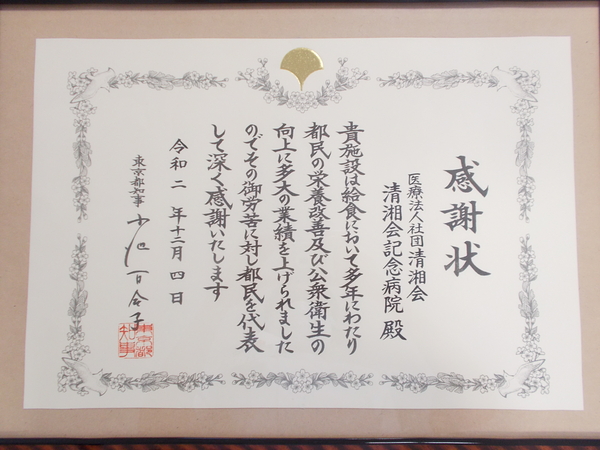 感謝状
医療法人社団清湘会
清湘会記念病院 殿
貴施設は給食において多年にわたり
都民の栄養改善及び公衆衛生の
向上に多大の業績を上げられました
のでその御労苦に対し都民を代表
して深く感謝いたします
令和二年十二月四日
東京都知事 小池百合子
東京都知事